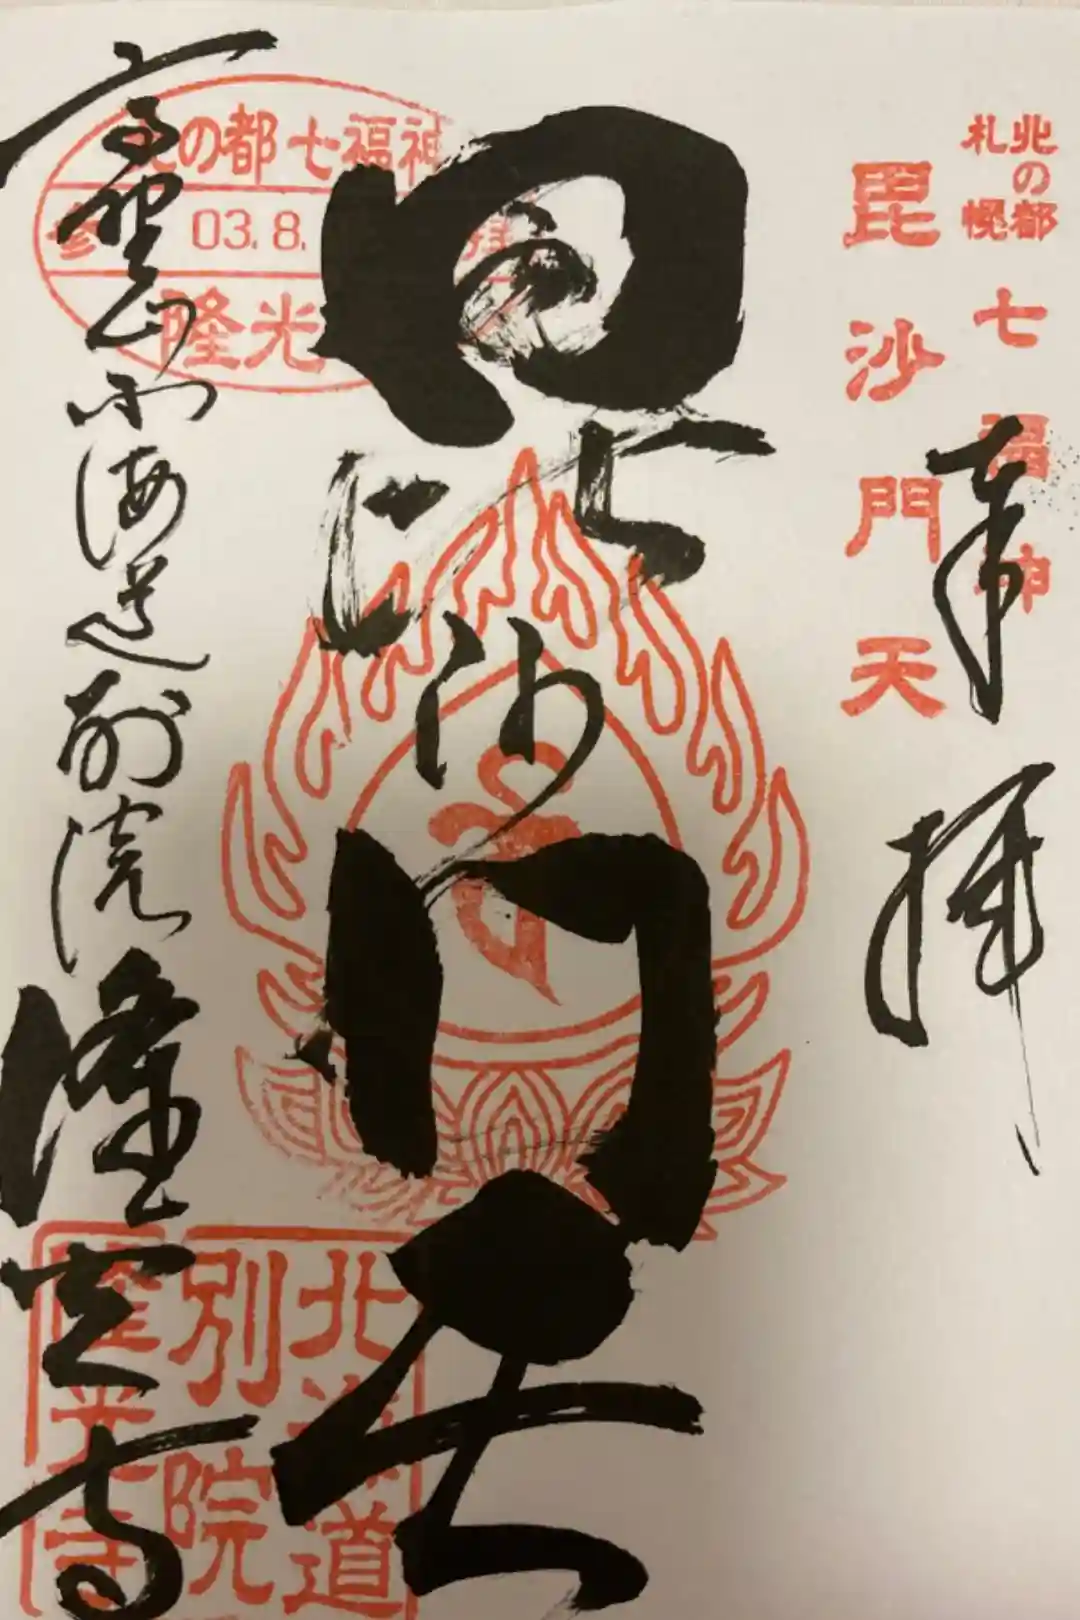 北の都
札幌
七福神
毘沙門天
奉拝
毘沙門天
北の都七福神
参 03.8. 拝
隆光
高野山北海道別院
隆光寺
北海道
別院
隆光寺